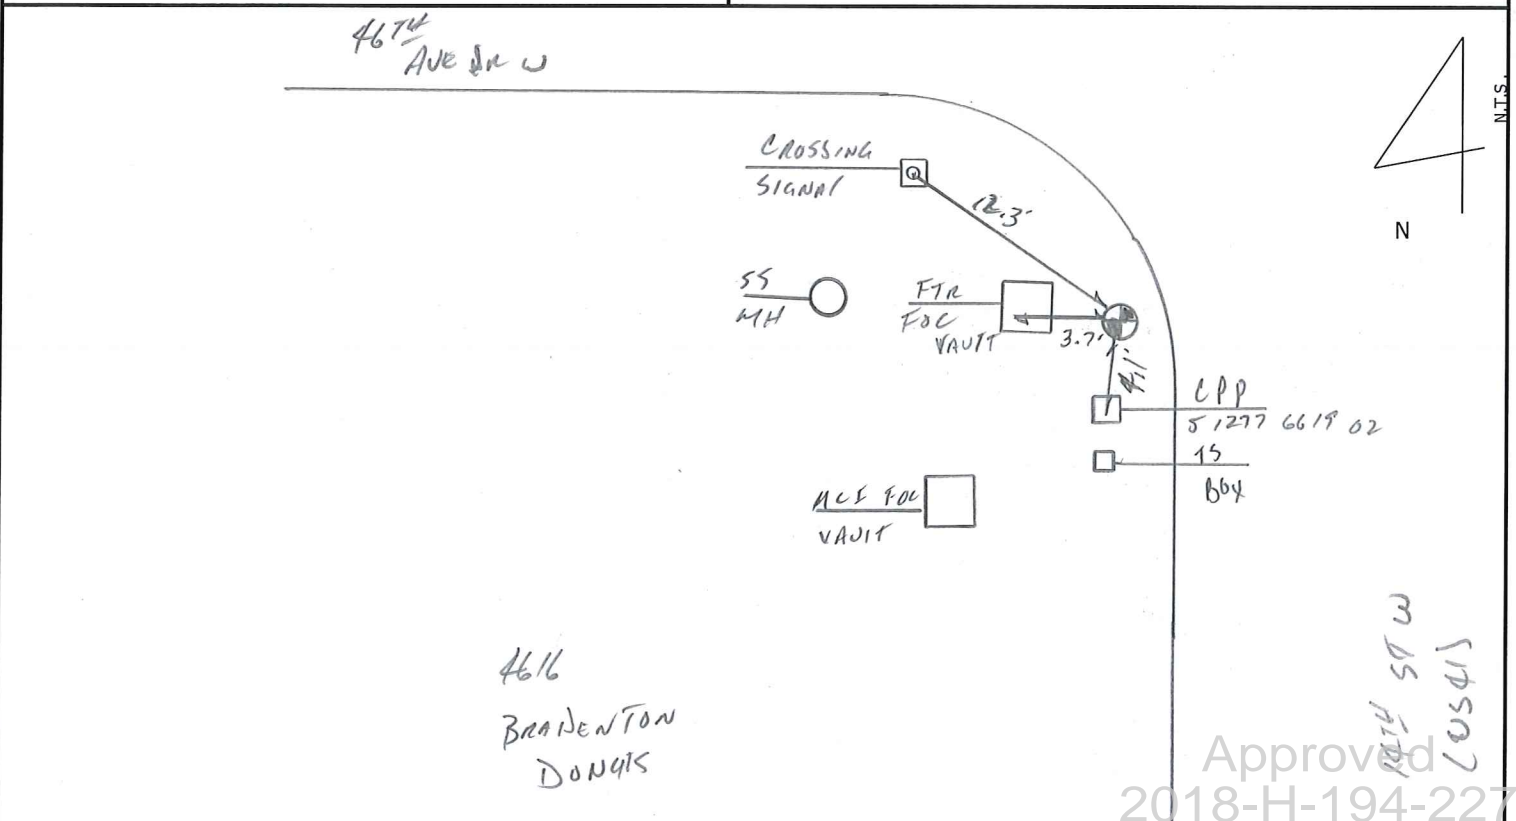 46TH
AVE DR W
N.T.S.
CROSSING
SIGNAL
12.3'
N
SS
MH
FTR
FOC
VAULT
3.7'
4.1'
CPP
5 1277 6619 02
TS
BOX
MCI FOC
VAULT
4616
BRADENTON
DONUTS
14TH ST W
(US41)
Approved
2018-H-194-227